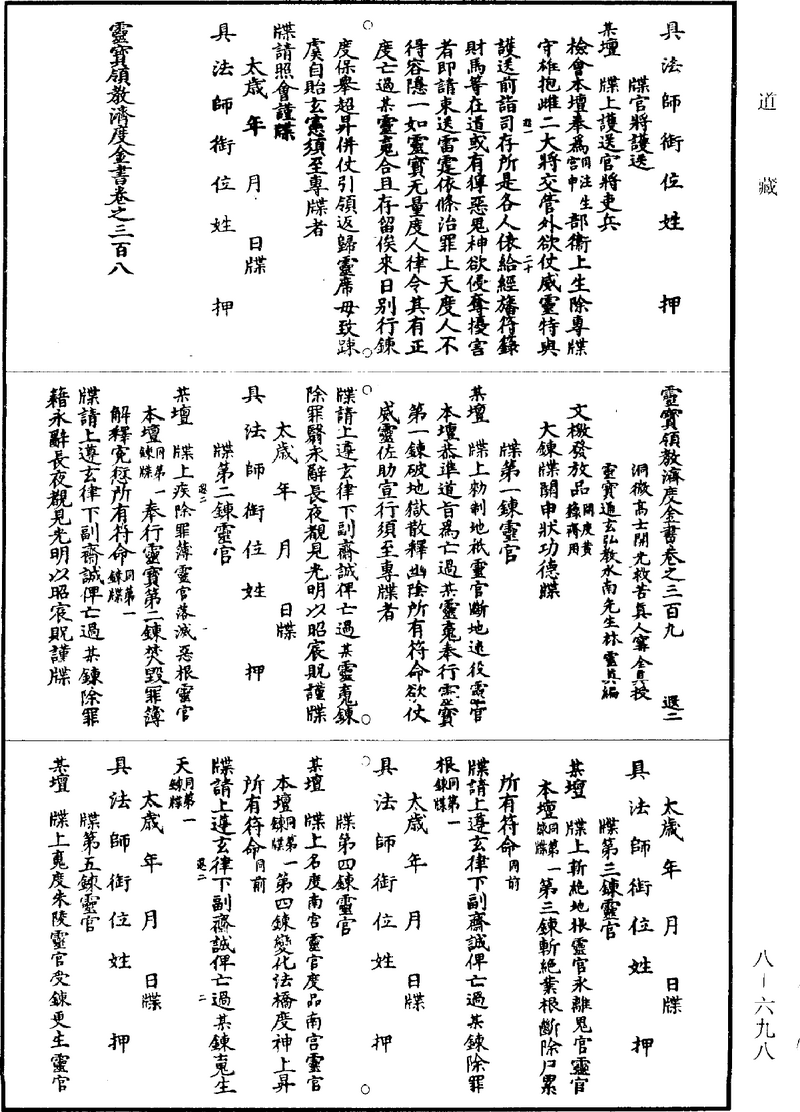 道藏
具法師銜位姓　押
牒官將護送
某壇　牒上護送官將吏兵
檢會本壇奉為同注生宫申部衛上生除專牒
守雄抱雌二大將交管外欲仗威靈特與
護送前詣司存所是各人依給經旛符籙
財馬等在道或有傅惡鬼神欲侵奪擾害
者即請束送雷霆依條治罪上天度人不
得容隱一如靈寶无量度人律令其有正
度亡過某靈䰟合且存留俟來日别行鍊
度保舉超昇併仗引領返歸靈席毋致踈
虞自貽玄憲須至專牒者
牒請照會謹牒
太歲　年　月　日牒
具法師銜位姓　押
靈寶領教濟度金書卷之三百八
靈寶領教濟度金書卷之三百九　選二
洞微高士開光救苦真人甯全真授
靈寶通玄弘教水南先生林靈真編
文檄發放品開度黄籙齋用
大鍊牒關申狀功德牒
牒第一鍊靈官
某壇　牒上勑制地祇靈官斷地逮役靈官
本壇恭準道旨為亡過某靈䰟奉行靈寶
第一鍊破地獄散釋幽陰所有符命欲仗
威靈佐助宣行須至專牒者
牒請上遵玄律下副齋誠俾亡過某靈䰟鍊
除罪翳永辭長夜覩見光明以昭宸貺謹牒
太歲　年　月　日牒
具法師銜位姓　押
牒第二鍊靈官
某壇　牒上疾除罪簿靈官落滅惡根靈官
本壇同第一鍊牒奉行靈寶第二鍊焚毀罪簿
解釋寃愆所有符命同第一鍊牒
牒請上遵玄律下副齋誠俾亡過某鍊除罪
籍永辭長夜覩見光明以昭宸貺謹牒
太歲　年　月　日牒
具法師銜位姓　押
牒第三鍊靈官
某壇　牒上斬絶地根靈官永離鬼官靈官
本壇同第一鍊牒第三鍊斬絶業根斷除尸累
所有符命同前
牒請上遵玄律下副齋誠俾亡過某鍊除罪
根同第一鍊牒
太歲　年　月　日牒
具法師銜位姓　押
牒第四鍊靈官
某壇　牒上名度南宫靈官度品南宫靈官
本壇同第一鍊牒第四鍊變化法橋度神上昇
所有符命同前
牒請上遵玄律下副齋誠俾亡過某鍊䰟生
天同第一鍊牒
太歲　年　月　日牒
具法師銜位姓　押
牒第五鍊靈官
某壇　牒上䰟度朱陵靈官受鍊更生靈官
八－六九八